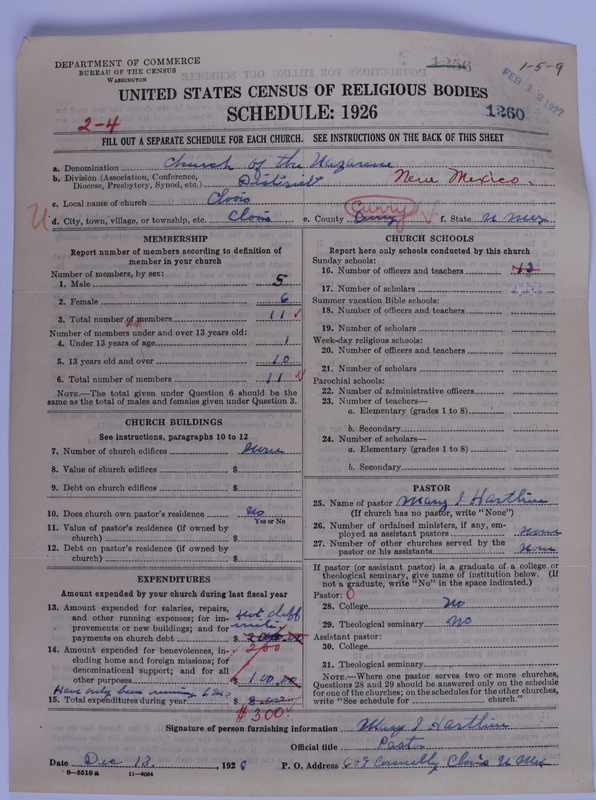 DEPARTMENT OF COMMERCE
BUREAU OF THE CENSUS
WASHINGTON
1256
1-5-9
FEB 12 1927
UNITED STATES CENSUS OF RELIGIOUS BODIES
SCHEDULE: 1926
1260
2-4
FILL OUT A SEPARATE SCHEDULE FOR EACH CHURCH. SEE INSTRUCTIONS ON THE BACK OF THIS SHEET
a. Denomination Church of the Nazarene
b. Division (Association, Conference, Diocese, Presbytery, Synod, etc.) District New Mexico
c. Local name of church Clovis
d. City, town, village, or township, etc. Clovis e. County Curry f. State N Mex
MEMBERSHIP
Report number of members according to definition of member in your church
Number of members, by sex:
1. Male 5
2. Female 6
3. Total number of members 11
Number of members under and over 13 years old:
4. Under 13 years of age 1
5. 13 years old and over 10
6. Total number of members 11
NOTE.—The total given under Question 6 should be same as the total of males and females given under Question 3.
CHURCH BUILDINGS
See instructions, paragraphs 10 to 12
7. Number of church edifices None
8. Value of church edifices $
9. Debt on church edifices $
10. Does church own pastor's residence? No
Yes or No
11. Value of pastor's residence (if owned by church) $
12. Debt on pastor's residence (if owned by church) $
EXPENDITURES
Amount expended by your church during last fiscal year
13. Amount expended for salaries, repairs, and other running expenses; for improvements or new buildings; and for payments on church debt $ 200.00
200
14. Amount expended for benevolences, including home and foreign missions; for denominational support; and for all other purposes $ 100.00
Have only been running 6 mo
15. Total expenditures during year $
$300
CHURCH SCHOOLS
Report here only schools conducted by this church
Sunday schools:
16. Number of officers and teachers 13
17. Number of scholars
Summer vacation Bible schools:
18. Number of officers and teachers
19. Number of scholars
Week-day religious schools:
20. Number of officers and teachers
21. Number of scholars
Parochial schools:
22. Number of administrative officers
23. Number of teachers—
a. Elementary (grades 1 to 8)
b. Secondary
24. Number of scholars—
a. Elementary (grades 1 to 8)
b. Secondary
PASTOR
25. Name of pastor Mary I Hartline
(If church has no pastor, write "None")
26. Number of ordained ministers, if any, employed as assistant pastors None
27. Number of other churches served by the pastor or his assistants None
If pastor (or assistant pastor) is a graduate of a college or theological seminary, give name of institution below. (If not a graduate, write "No" in the space indicated.)
Pastor: 0
28. College No
29. Theological seminary No
Assistant pastor:
30. College
31. Theological seminary
NOTE.—Where one pastor serves two or more churches, Questions 28 and 29 should be answered only on the schedule for one of the churches; on the schedules for the other churches, write "See schedule for church."
Signature of person furnishing information Mary I Hartline
Official title Past.
Date Dec 13, 1926 P. O. Address 609 Connelly Clovis N Mex
8—5518 a 11—9054